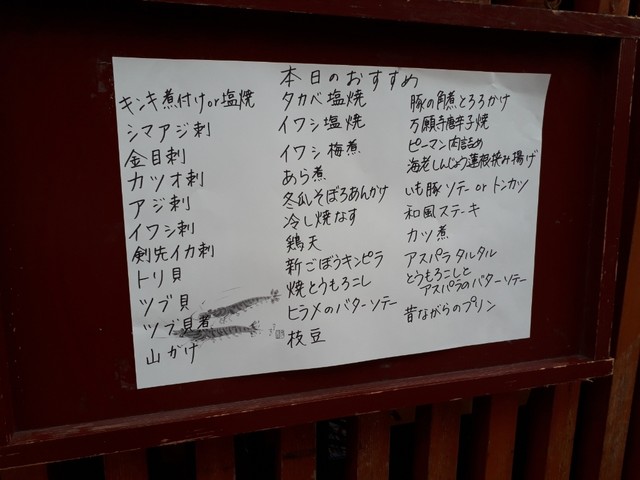 本日のおすすめ
キンキ煮付けor塩焼
シマアジ刺
金目刺
カツオ刺
アジ刺
イワシ刺
剣先イカ刺
トリ貝
ツブ貝
ツブ貝煮
山かけ
タカベ塩焼
イワシ塩焼
イワシ梅煮
あら煮
冬瓜そぼろあんかけ
冷し焼なす
鶏天
新ごぼうキンピラ
焼とうもろこし
ヒラメのバターソテー
枝豆
豚の角煮とろろかけ
万願寺唐辛子焼
ピーマン肉詰め
海老しんじょう蓮根挟み揚げ
いも豚ソテーorトンカツ
和風ステーキ
カツ煮
アスパラタルタル
とうもろこしと
アスパラのバターソテー
昔ながらのプリン